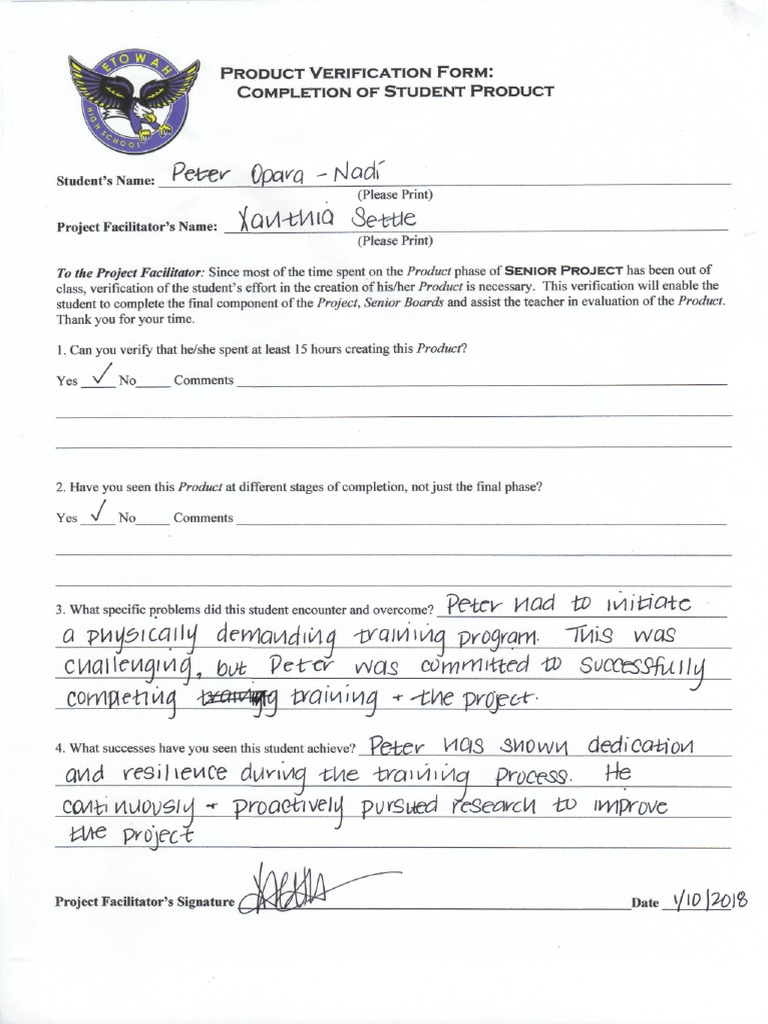 ETOWAH
HIGH SCHOOL
PRODUCT VERIFICATION FORM:
COMPLETION OF STUDENT PRODUCT
Student's Name: Peter Opara - Nadi
(Please Print)
Project Facilitator's Name: Xanthia Settle
(Please Print)
To the Project Facilitator: Since most of the time spent on the Product phase of SENIOR PROJECT has been out of
class, verification of the student's effort in the creation of his/her Product is necessary. This verification will enable the
student to complete the final component of the Project, Senior Boards and assist the teacher in evaluation of the Product.
Thank you for your time.
1. Can you verify that he/she spent at least 15 hours creating this Product?
Yes ✓ No Comments
2. Have you seen this Product at different stages of completion, not just the final phase?
Yes ✓ No Comments
3. What specific problems did this student encounter and overcome? Peter had to initiate
a physically demanding training program. This was
challenging, but Peter was committed to successfully
completing training + the project.
4. What successes have you seen this student achieve? Peter has shown dedication
and resilience during the training process. He
continuously + proactively pursued research to improve
the project
Project Facilitator's Signature Date 1/10/2018